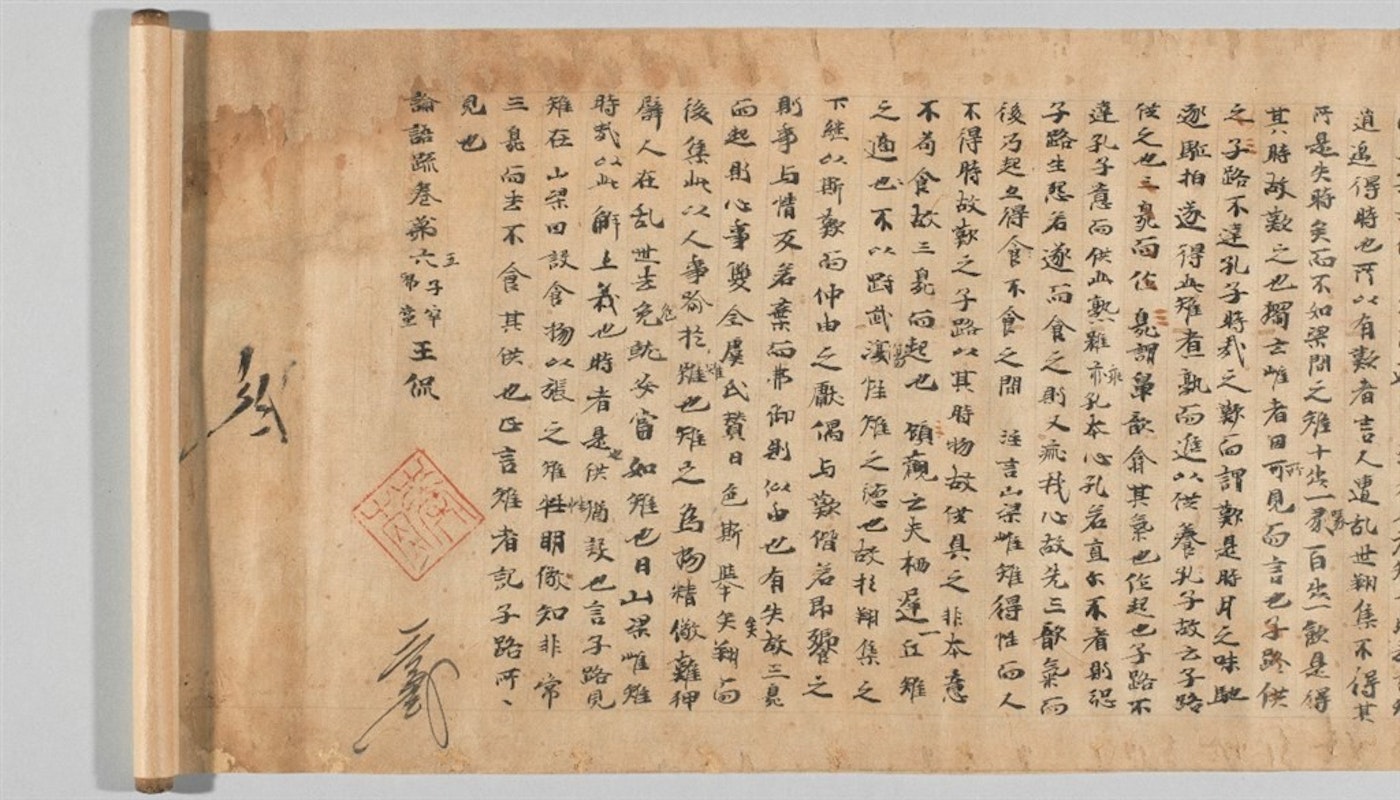 逍遥得時也所以有歎者言人遭乱世翔集不得其
所是失時矣而不如梁間之雉十歩一啄百歩一飲是得
其時故歎之也獨云雌者因所見而言也子路供
之子路不達孔子時哉之歎而謂歎是時月之味馳
逐駈拍遂得此雉者煮熟而進以供養孔子故云子路
供之也三臭而作臭謂鼻歆翕其氣也作起也子路不
達孔子意而供此熟雉乖孔本心孔若直尓不者則恐
子路生怨若遂而食之則又乖我心故先三歆氣而
後乃起亦得食不食之間 注言山梁雌雉得性而人
不得時故歎之子路以其時物故供具之非本意
不苟食故三臭而起也 顧觀云夫栖遲一丘雉
之適也不以剛武傷性雉之德也故於翔集之
下継以斯歎而仲由之獻偶与歎偕若即饗之
則事与情反若棄而弗御則似由也有失故三臭
而起則心事雙全虞氏賛曰色斯擧矣翔而
後集此以人事喩於雉也雉之為物精儆難狎
譬人在乱世去危就安當如雉也曰山梁雌雉
時哉以此解上義也時者是也供猶設也言子路見
雉在山梁因設食物以張之雉性明儆知非常
三臭而去不食其供也正言雌者記子路所
見也
論語疏巻第六 王侃